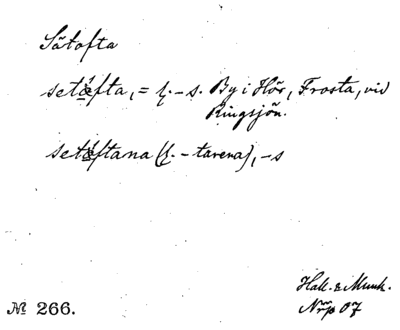 Sätofta
setåfta, = f. -s. By i Hör, Frosta, vid
Ringsjön.
setåftana (f. - tarena), -s
Hall. & Munk.
№ 266.
07